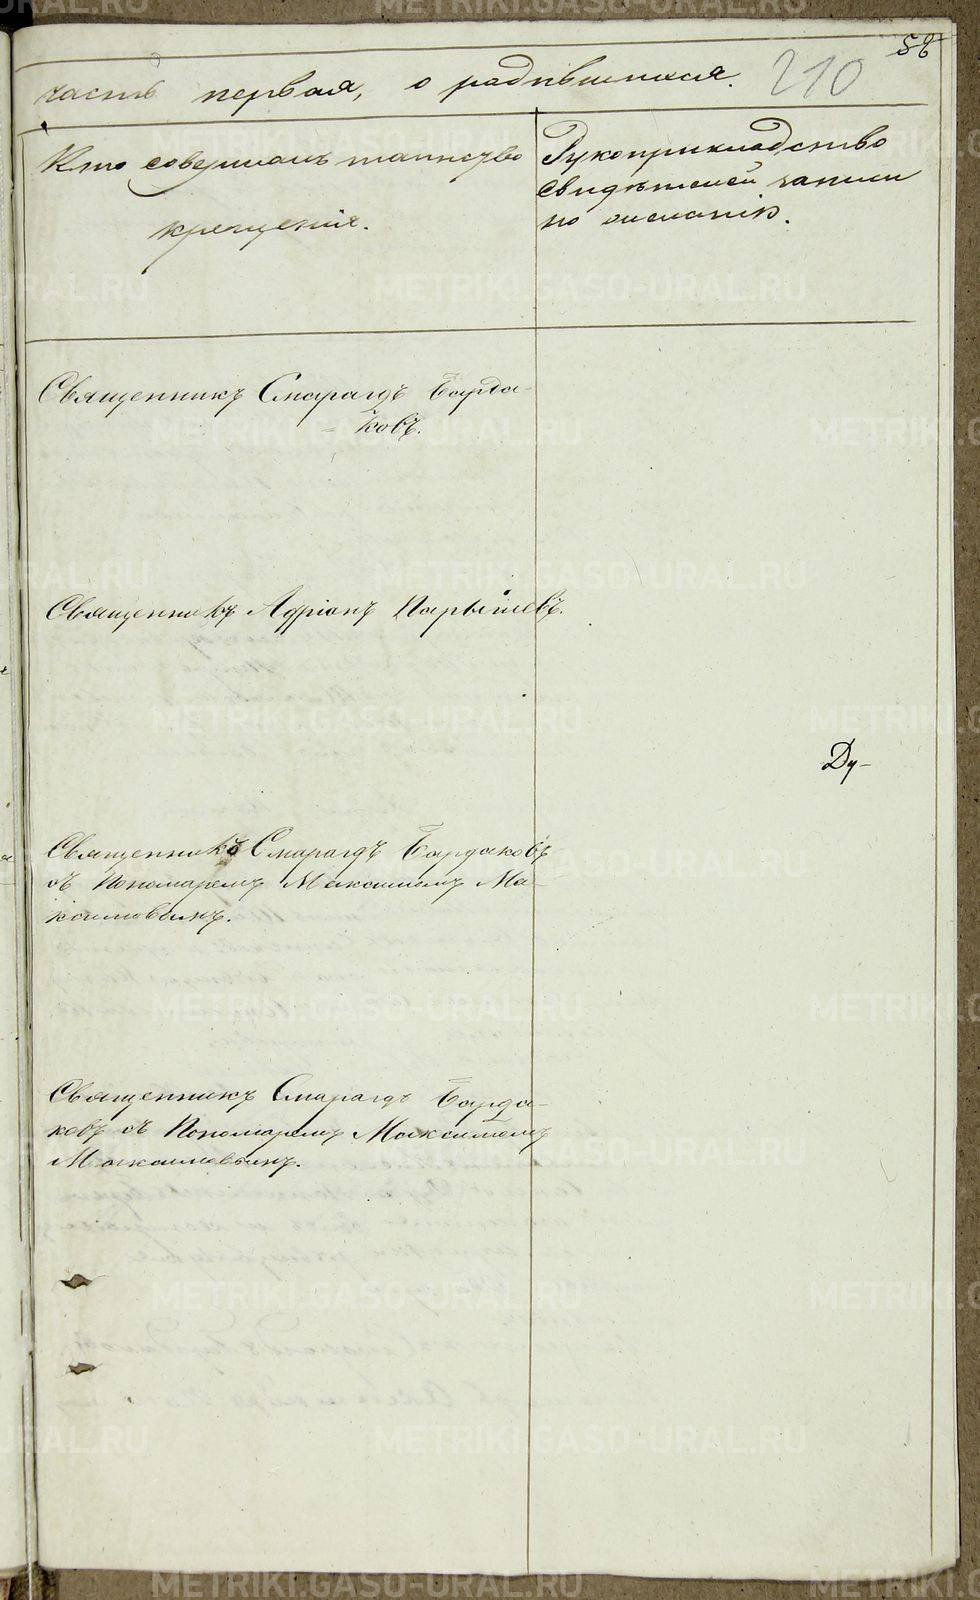 58
часть первая, о родившихся. 210
Кто совершалъ таинство
крещенія.
Рукоприкладство
свидѣтелей записи
по желанію.
Священникъ Смарагдъ Барда-
ковъ.
Священникъ Адріанъ Парышевъ.
Ду-
Священникъ Смарагдъ Бардаковъ
съ Пономаремъ Максимомъ Ма-
ксимовымъ.
Священникъ Смарагдъ Барда-
ковъ съ Пономаремъ Максимомъ
Максимовымъ.
METRIKI.GASO-URAL.RU